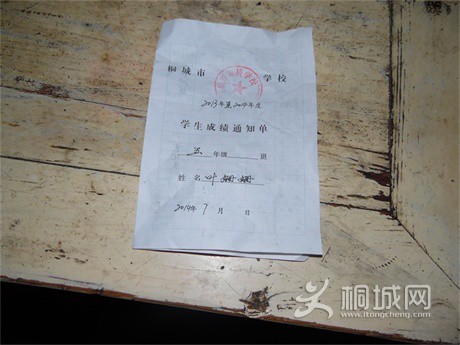 桐城市 学校
2013年至2014年度
学生成绩通知单
五 年级 班
姓名 叶姗姗
2014年 7 月 日
桐城网
www.itongcheng.com